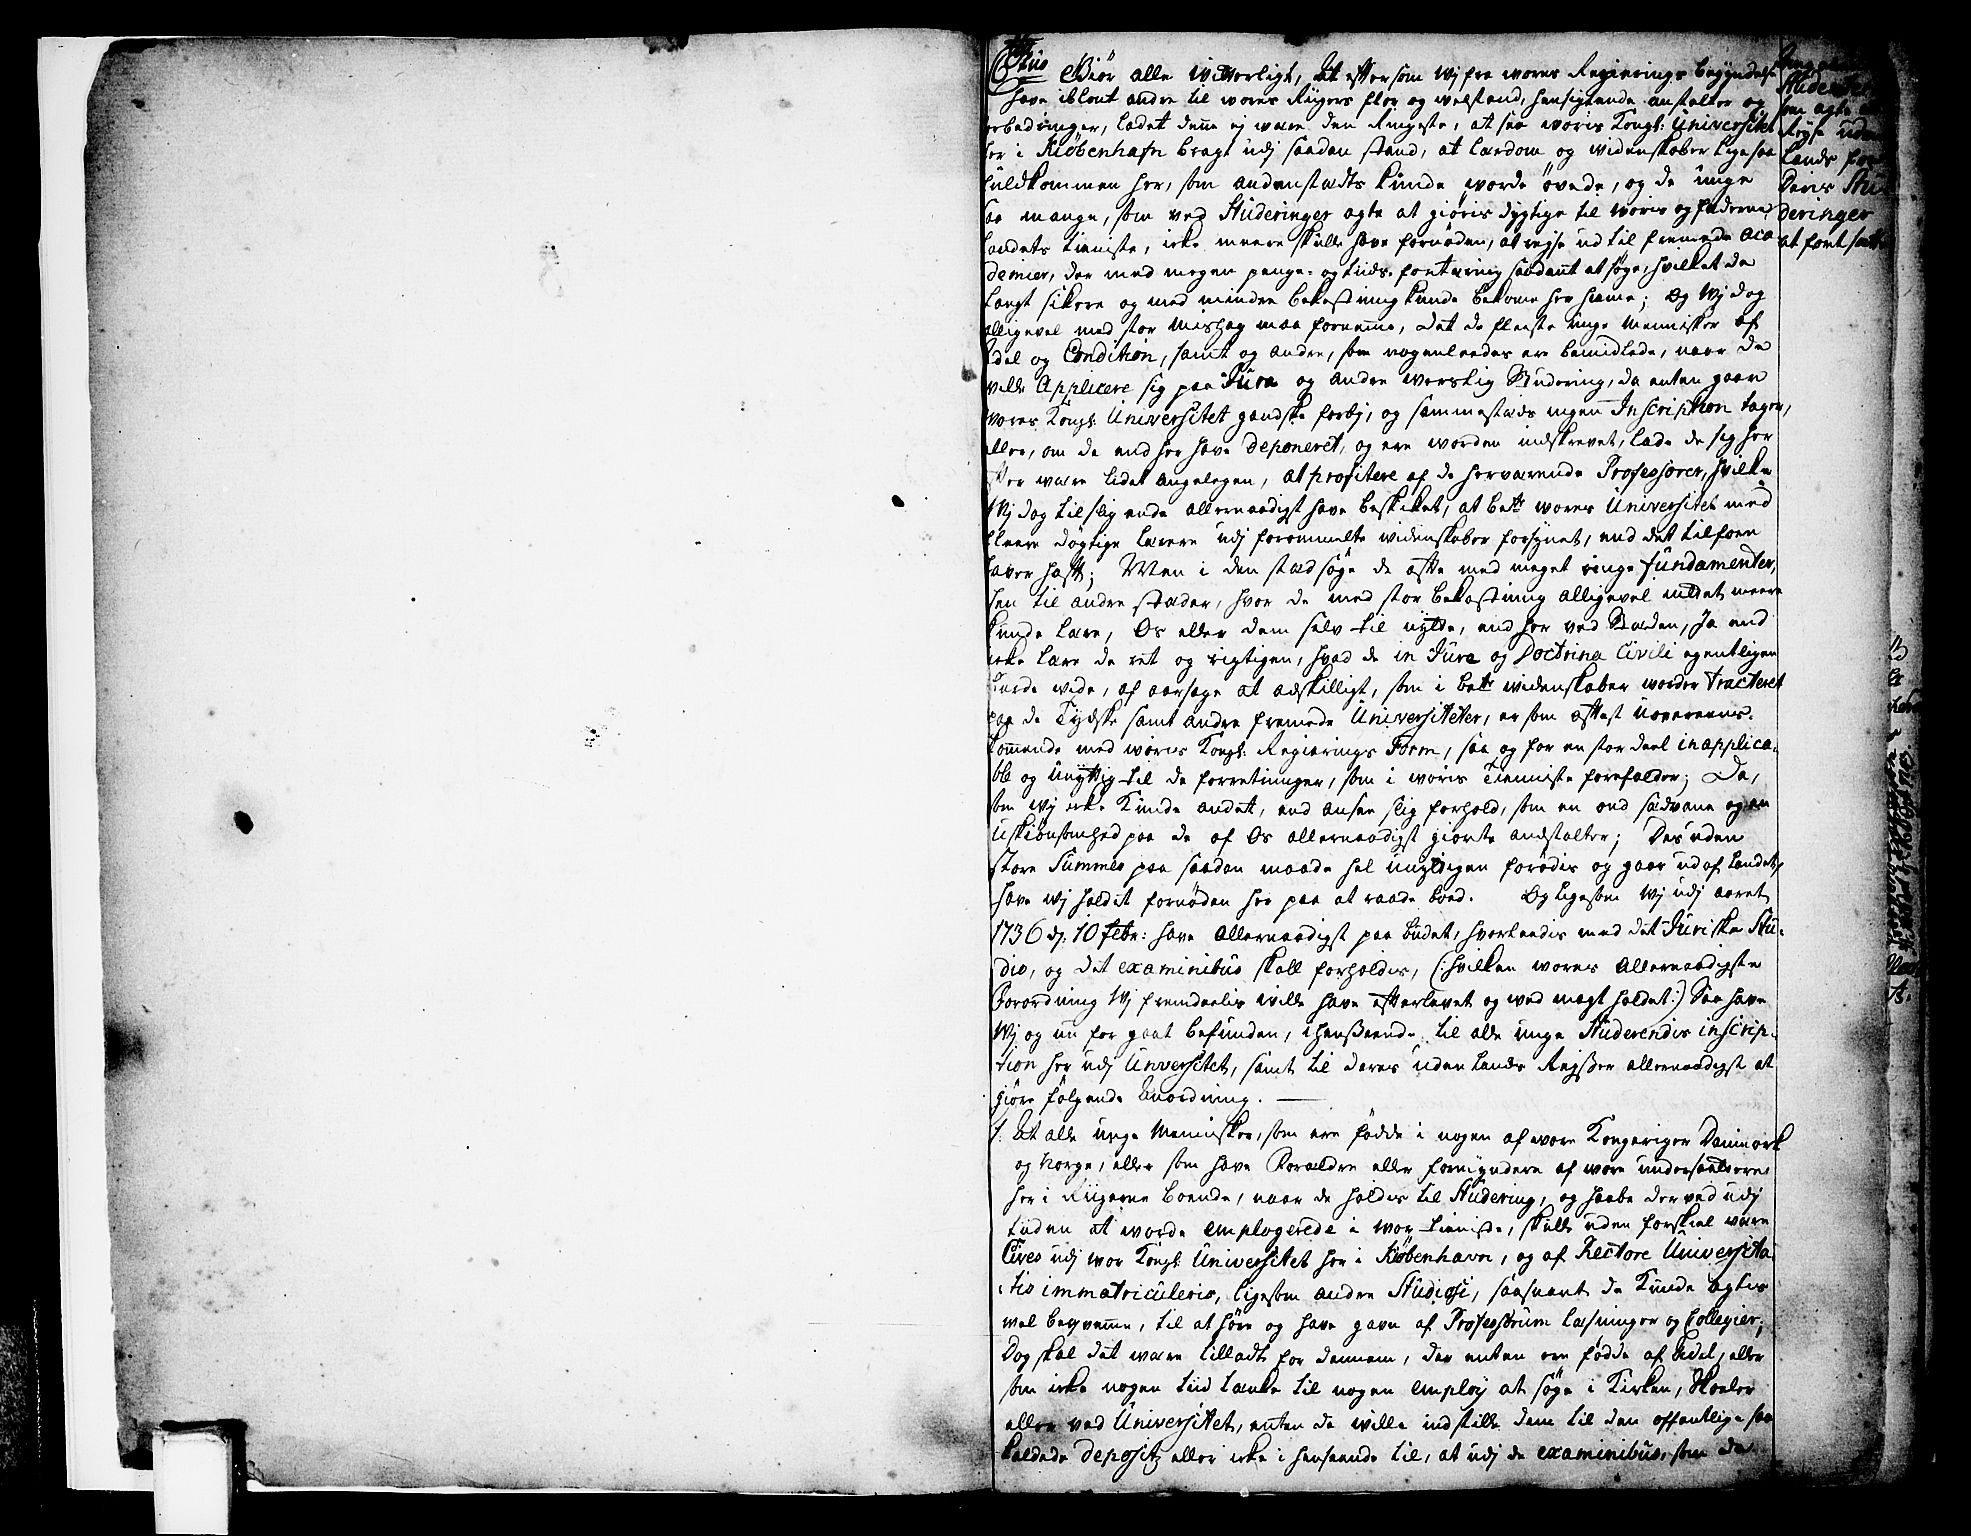 Giör alle witterligt, at eftersom wj fra wores Regierings begyndelse
have iblant andre til wores Riigers flor og welstand, hensigtende anstalter og
forbedringer, ladet denne ej være den Ringeste, at see woris Kongl: Universitet
her i Kiöbenhafn bragt udj saadan stand, at lærdom og widenskaber ligesaa
fuldkommen her, som andenstædts kunde worde övede, og de unge
saa mange, som ved Studeringer agte at giöris dygtige til woris og fæderne
landets tieniste, icke meere skulle have fornöden, at rejse ud til fremmede aca
demier, der med megen penge- og tiids- fortæring saadant at söge, hvilket de
langt sikere og med mindre bekostning kunde bekome her hieme; Og Wj dog
alligevel med stor Mishag maa fornemme, at de fleeste unge Mennisker af
Adel og Condition, samt og andre, som nogenleedes ere bemidlede, naar de
ville Applicere sig paa Jura og anden werslig Studering, da enten gaar
wores Kongl: Universitet gandske forbj, og sammestæds ingen Inscription tager,
eller, om de end her have deponeret, og ere worden indskrevet, lade de sig her
efter være lidet angelegen, at profitere af de herværende Professorer, hvilke
Wj dog til slig ende allernaadigst have beskiket, at bete wores Universitet med
fleere dögtige lærere udj forommelte widenskaber forsynet, end det tilforn
haver haft; Men i den stæd söge de ofte med meget ringe fundamenter,
hen til andre stæder, hvor de med stor bekostning alligevel intet meere
kunde lære, Os eller dem selv til nytte, end her ved Stæden, Ja end
icke lære de ret og rigtigen, hvad de in Jure og Doctrina Civili egentligen
burde wide, af aarsage at adskilligt, som i bete widenskaber worder tracteret
paa de Tydske samt andre fremede Universiteter, er som oftest uoverens-
komende med woris Kongl: Regierings Form, saa og for en stor deel inapplica-
ble og unyttig til de forretninger, som i woris Tienniste forefalder; Da,
som wj icke kunde andet, end ansee slig forhold, som en ond sædvane og en
uskiönsomhed paa de af Os allernaadigst giorte anstalter; Des uden
store Summer paa saadan maade hel unyttigen forödis og gaar ud af Landet,
have wj holdet fornöden her paa at raade bod. Og ligesom Wj udj aaret
1736 dj. 10 febr: have Allernaadigst paa budet, hvorleedis med det Juriske Stu-
dio, og det examinibus skall forholdes, (: hvilken wores Allernaadigste
Forordning Wj fremdeelis wille have efterlevet og wed magt holdet:) Saa have
Wj og nu for gaat befunden, i henseende til alle unge Studerendis inscrip-
tion her udj Unversitet, samt til deres uden Lands Rejser allernaadigst at
giöre fölgende Anordning.
1. At alle unge Mennisker, som ere födde i nogen af wore Kongeriger Danmark
og Norge, eller som have Forældre eller formyndere af wore undersaattere
her i Riigerne boende, naar de holdes til Studering, og haabe derved udj
tiiden at worde employerede i wor tieniste, skulle uden forskiel være
Cives udj wor Kongl: Universitet her i Kiöbenhavn, og af Rectore Universita
-tis immatriculeris, ligesom andre Studiosi, saasnart de kunde agtes
wel beqvemme, til at höre og have gavn af Professorum læsninger og Collegier;
Dog skal det være tilladt for dennem, der enten ere födde af Adel, eller
som icke nogen tiid tænke til nogen employ at söge i Kirken, Skoler
eller ved Universitet, enten de wille indstille dem til den offentlige saa
kaldede depositz eller icke i henseende til, at udj de examinibus, som de
Angaaende
Studenter
som agte at
Rejse uden
Lands for
Deris Stu
deringer
at fortsætte